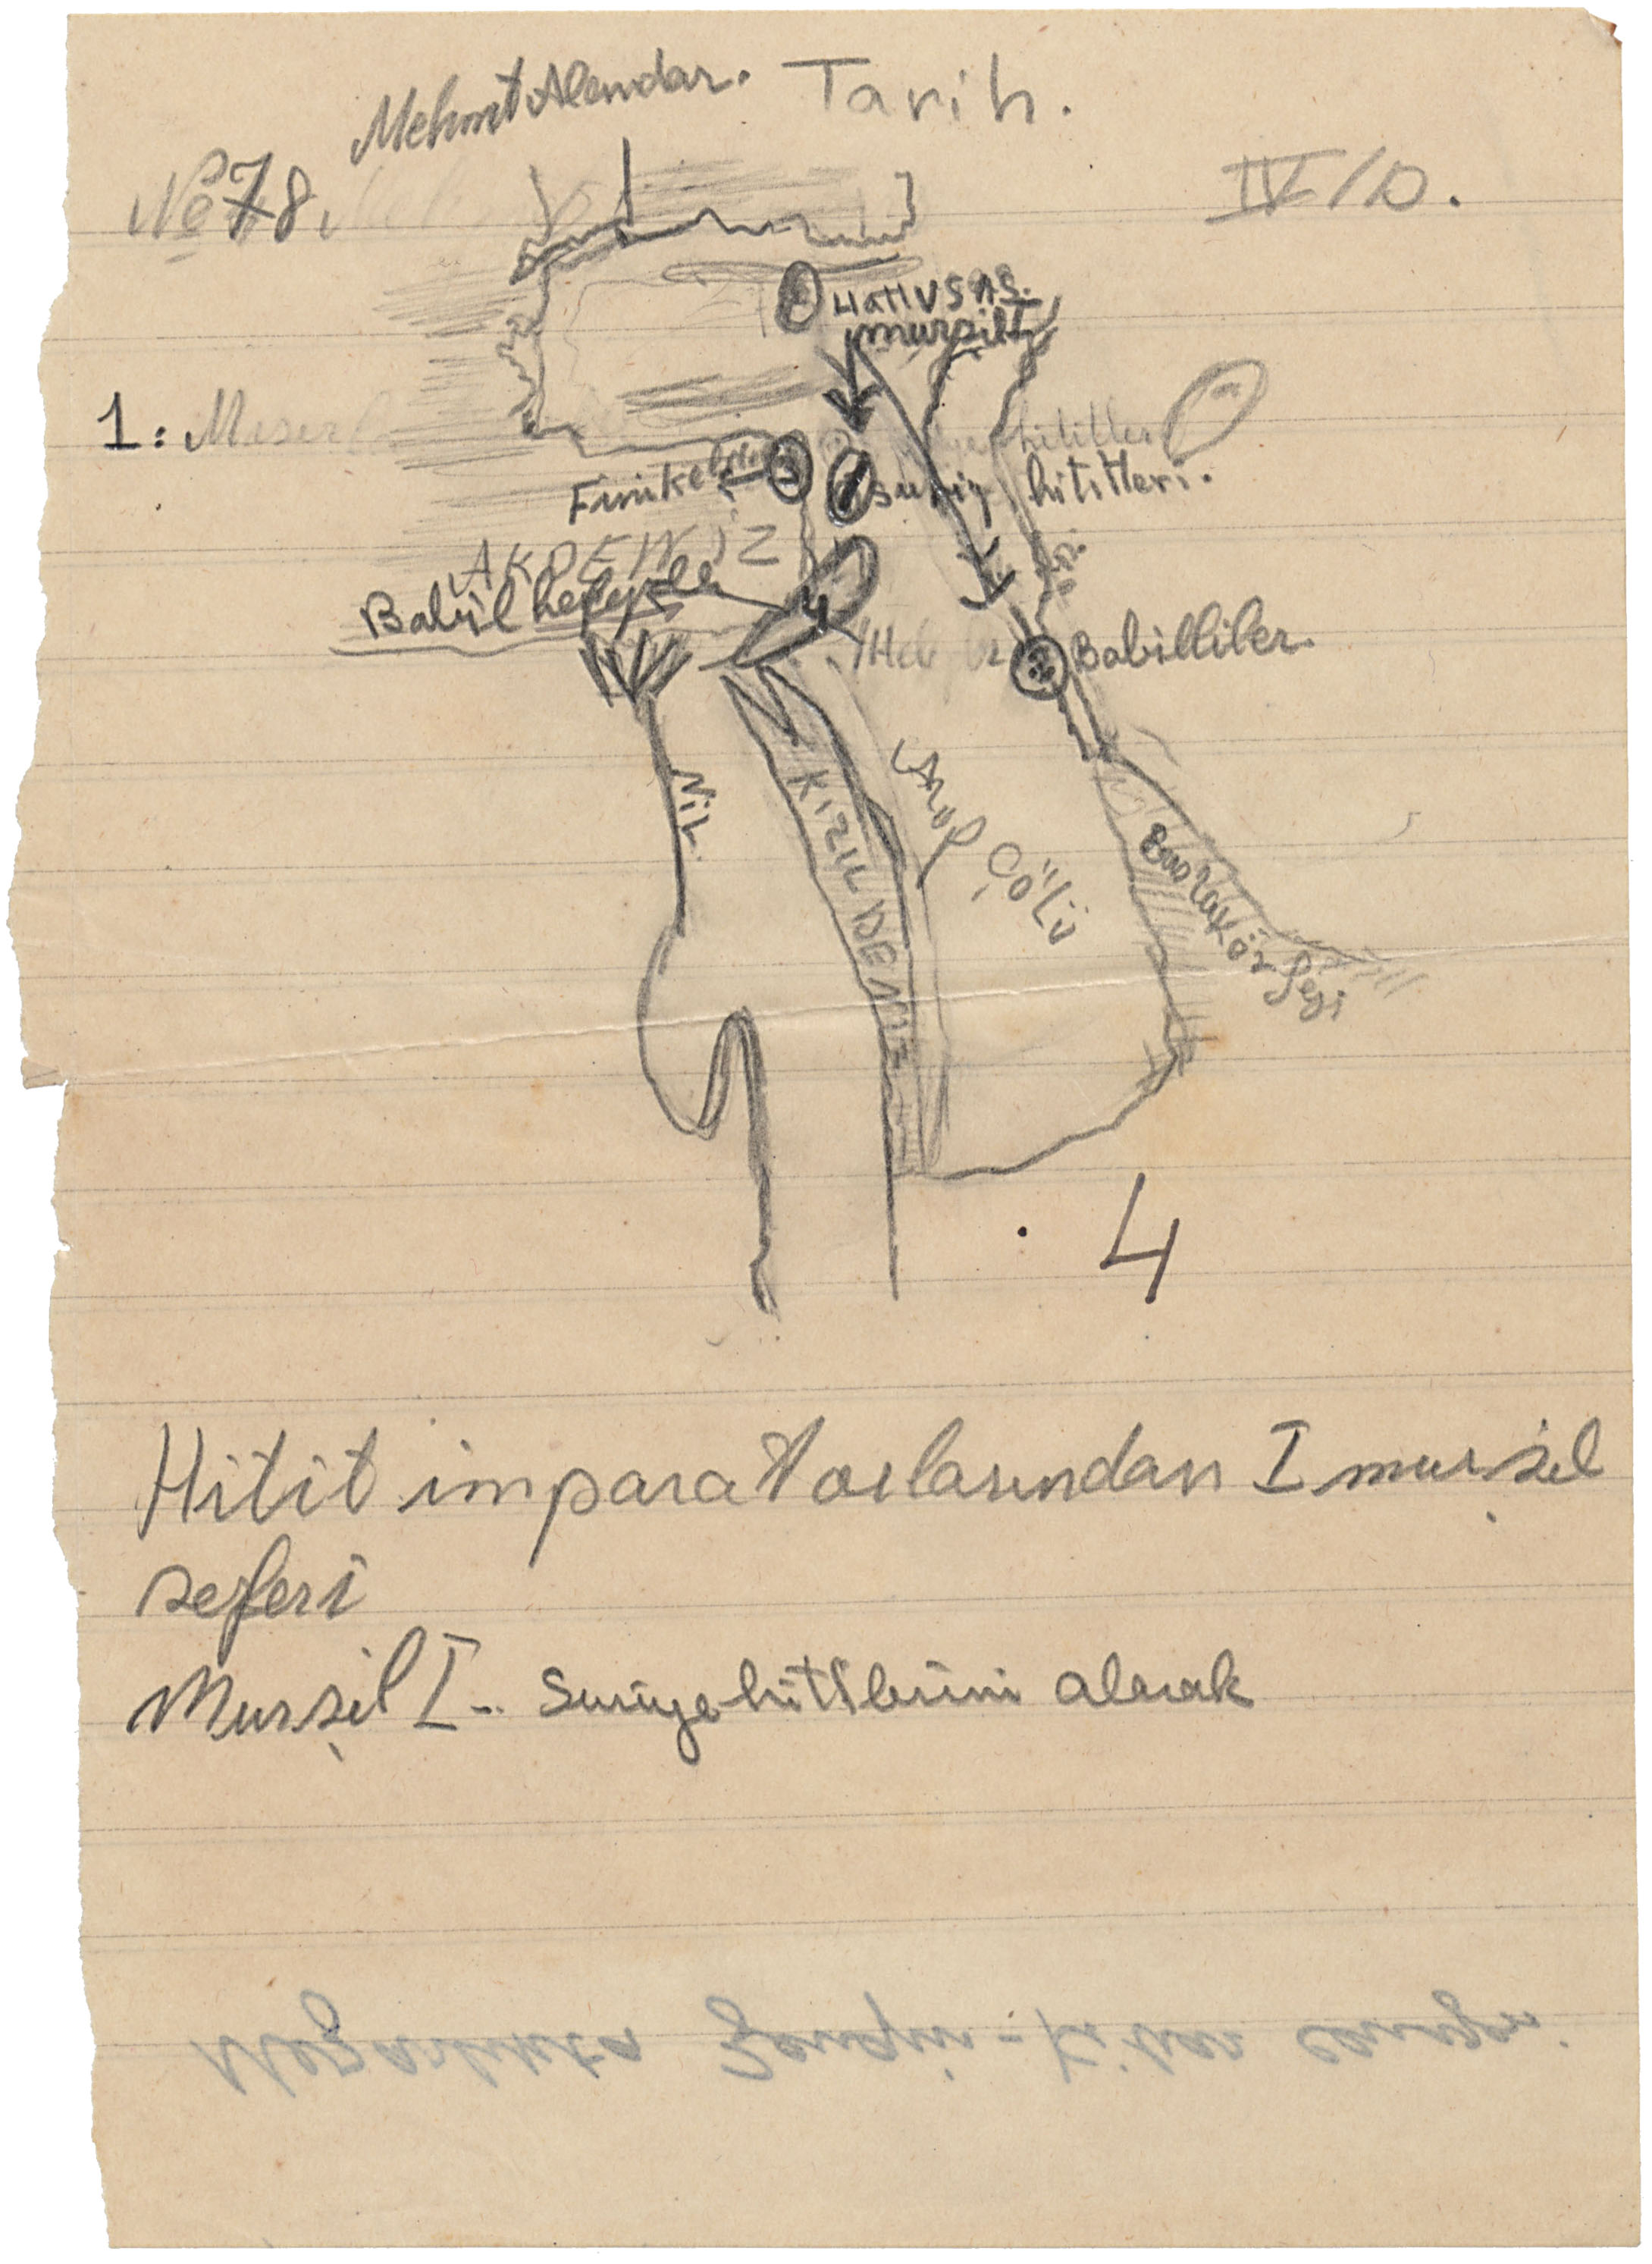 Mehmet Alemdar. Tarih.
No 78.
IV/D.
Hattusas.
mursil I
1: Mısır
hititler
Finike
3
suriye hititleri.
AKDENİZ
Babil
4
Babilliler.
NİL
KIZIL DENİZ
Arap Çölü
Basra Körfezi
4
Hitit imparatorlarından I mursil
seferi
Mursil I- Suriye hititlerini alarak